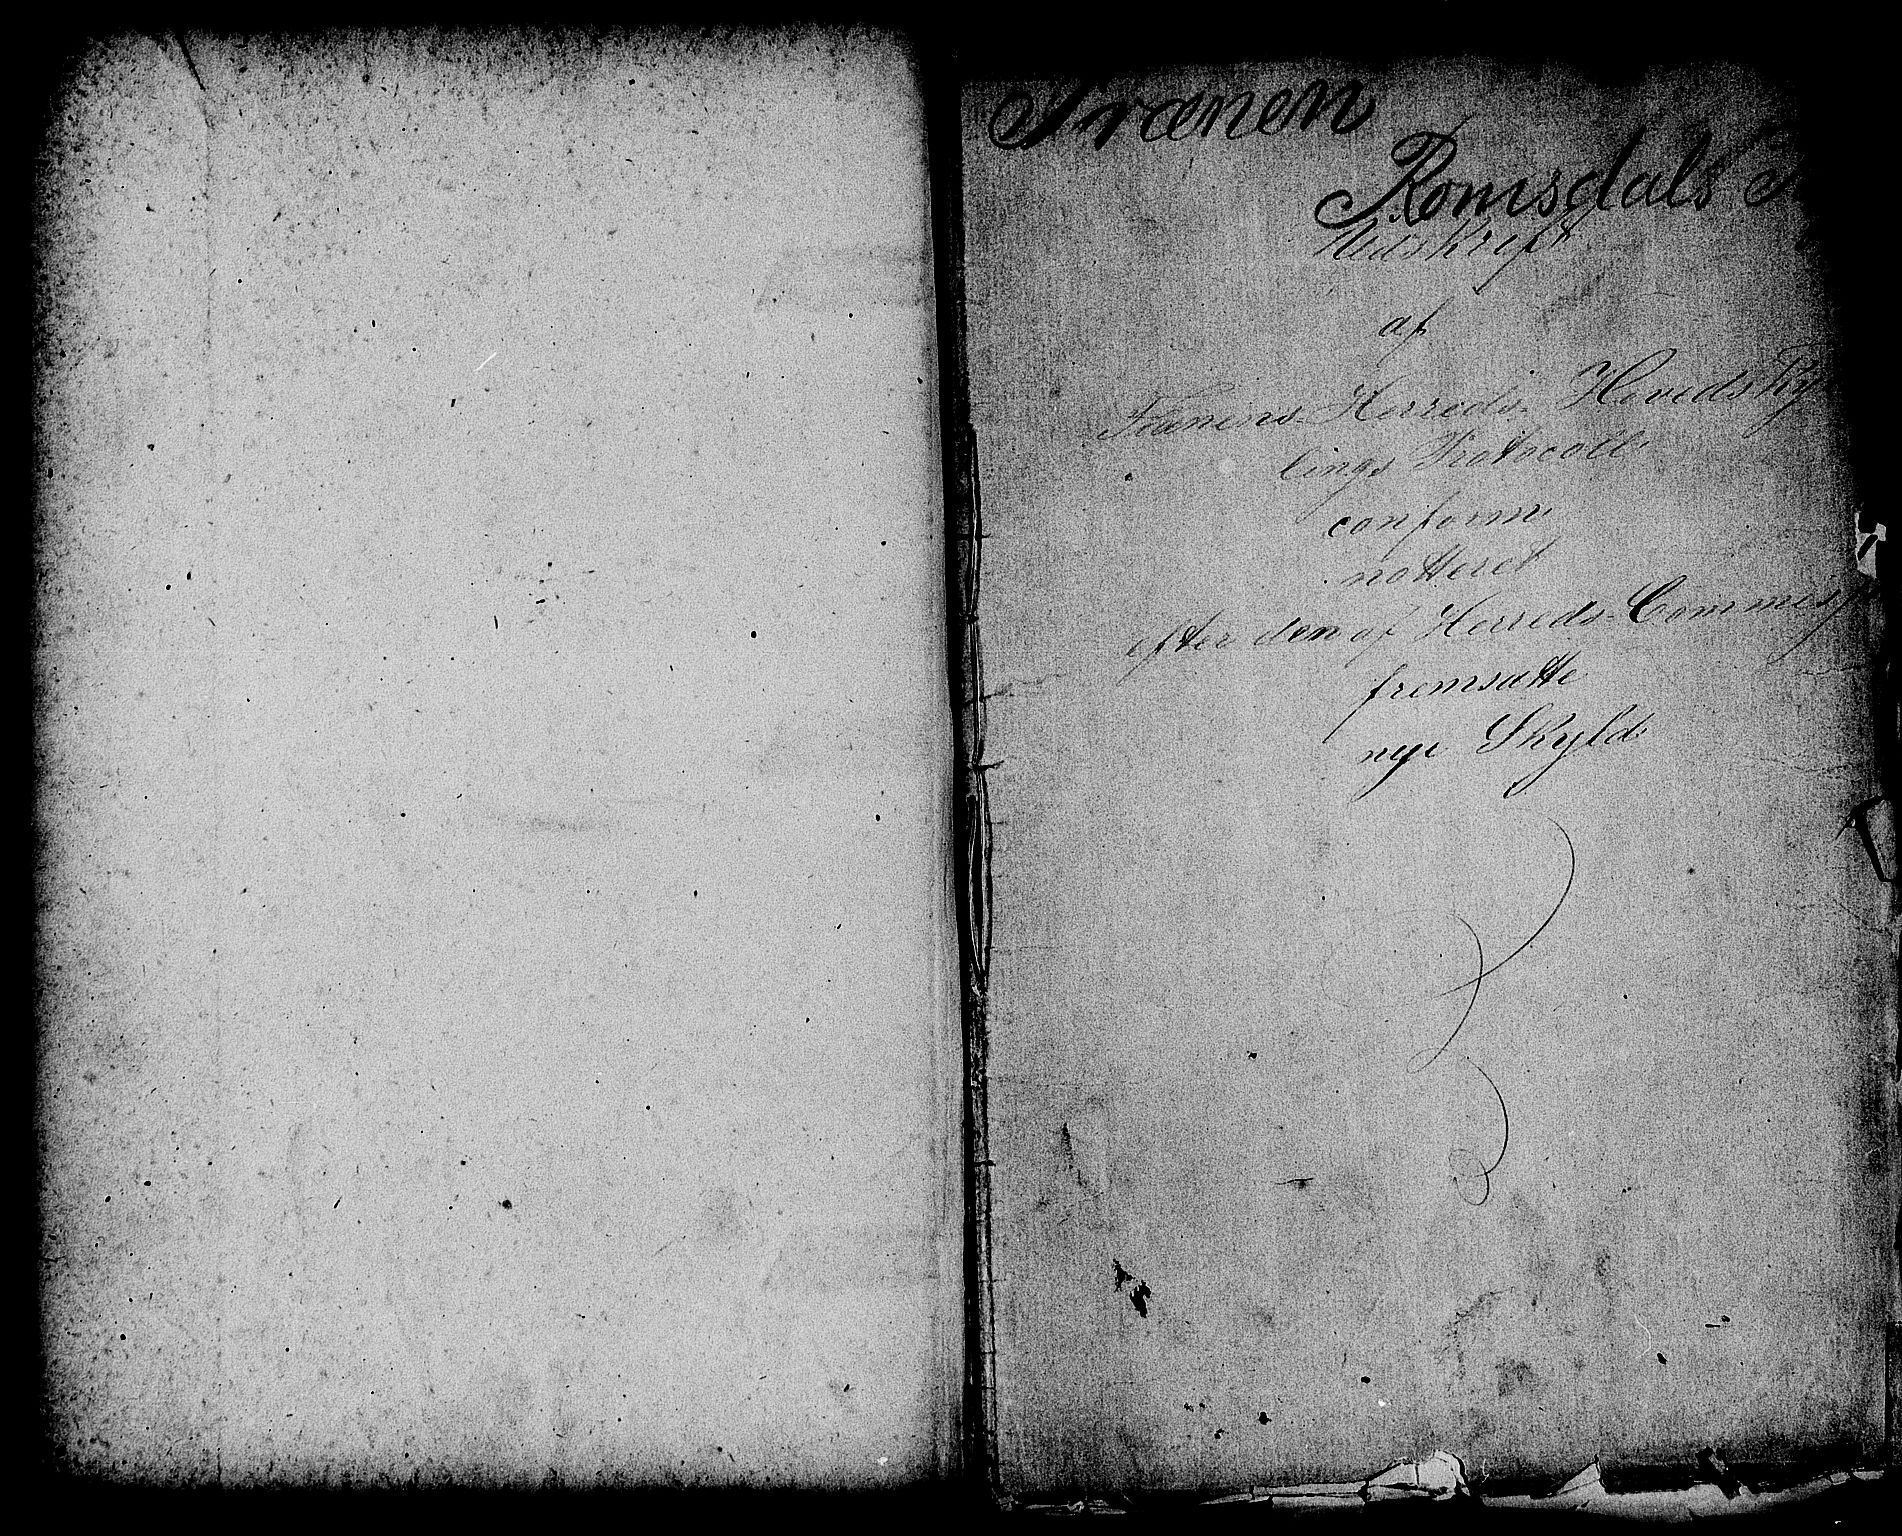 Frænen
Romsdals
Udskrift
af
Frænens Herreds Hovedsky
lings Protocoll
conform
notteret
efter den af Herreds-Commiss
fremsatte
nye Skyld